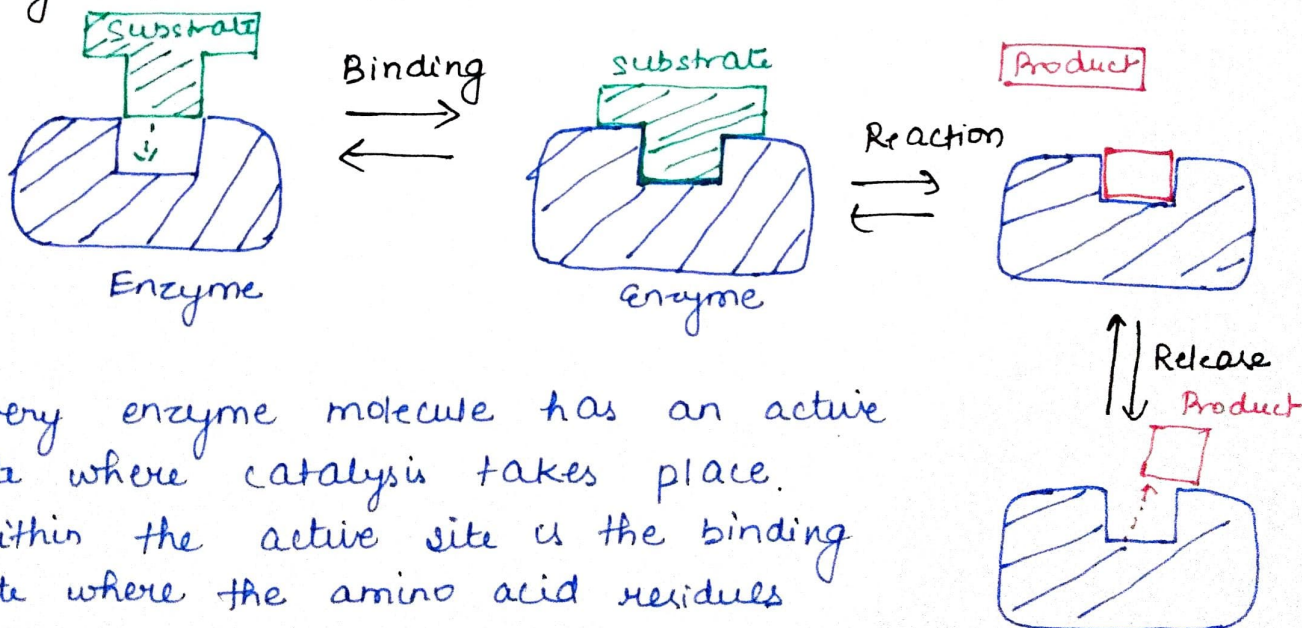 Substrate
Binding
substrate
Product
Reaction
Enzyme
Enzyme
Release
Product
ery enzyme molecule has an active
where catalysis takes place.
ithin the active site is the binding
te where the amino acid residues